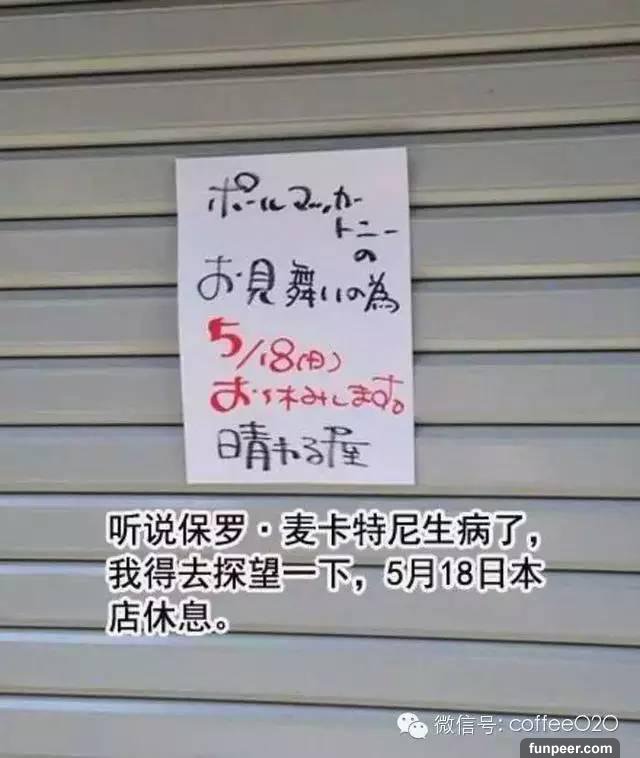 ポールマッカー
トニー
の
お見舞いの為
5/18(日)
お休みします。
晴れる屋
听说保罗·麦卡特尼生病了，
我得去探望一下，5月18日本
店休息。
微信号: coffee020
funpeer.com